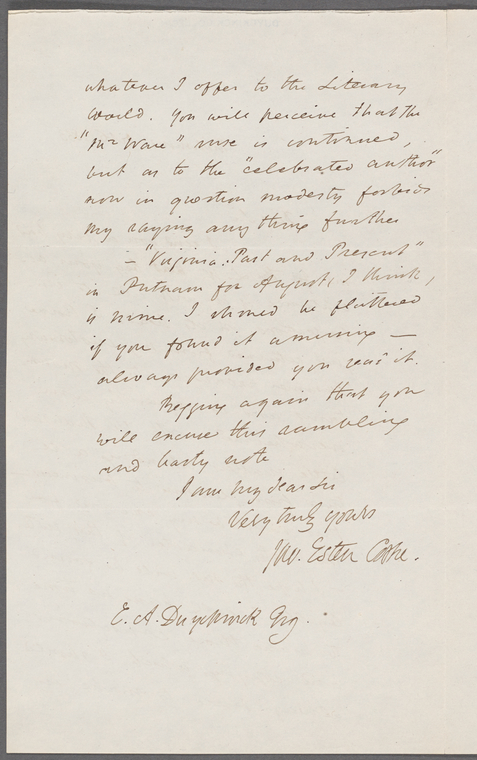 whatever I offer to the Literary
World. You will perceive that the
"Mr Ware" ruse is continued,
but as to the "celebrated author"
now in question modesty forbids
my saying any thing further
— "Virginia: Past and Present"
in Putnam for August, I think,
is mine. I should be flattered
if you found it amusing —
always provided you read it.
Begging again that you
will excuse this rambling
and hasty note
I am my dear Sir
Very truly yours
Jno. Esten Cooke.
E. A. Duyckinck Esq.